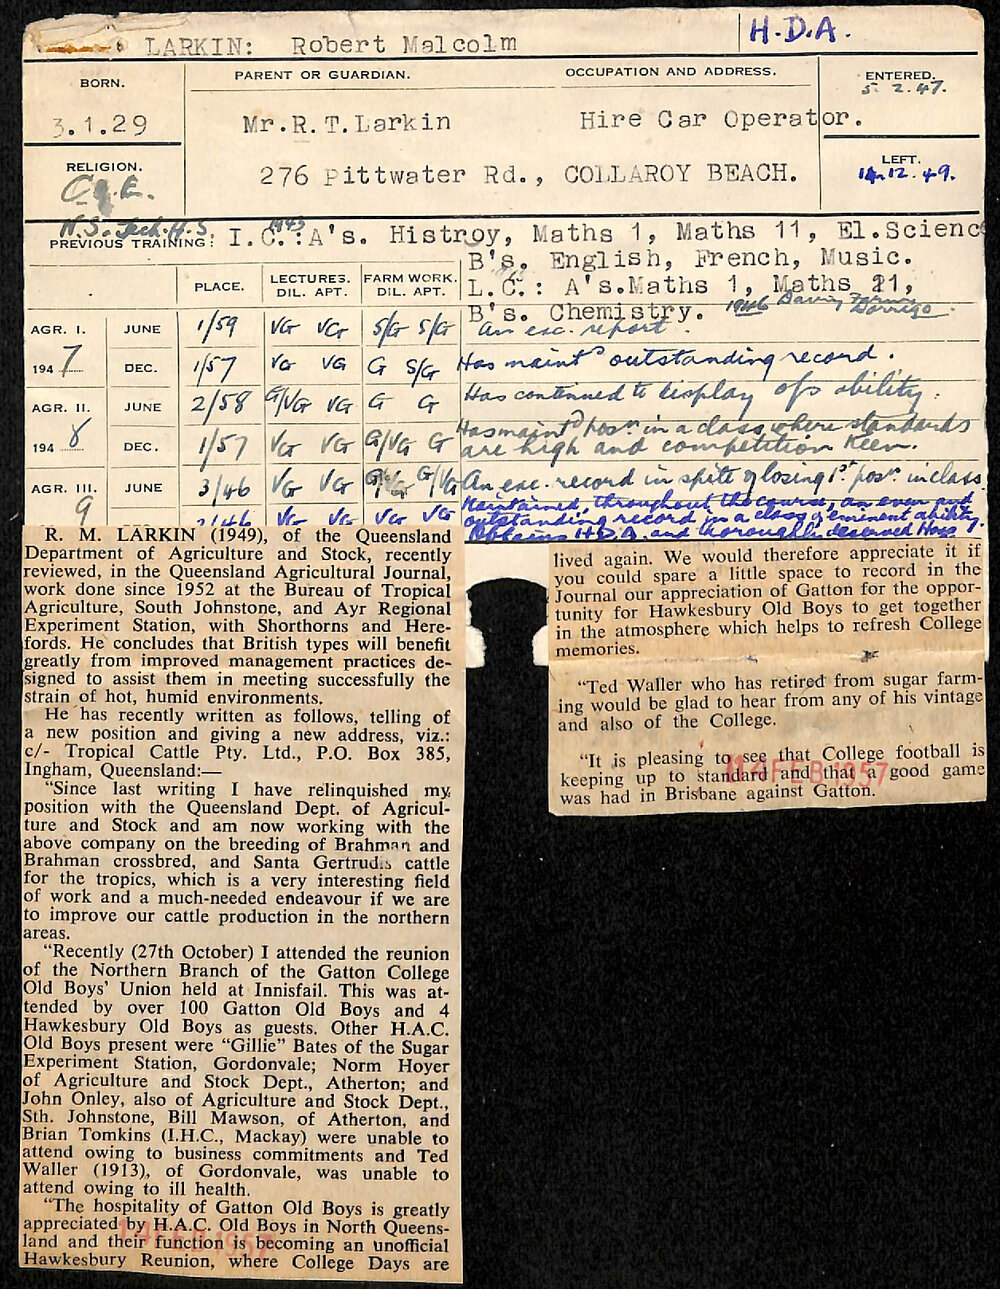 LARKIN: Robert Malcolm
H.D.A.
BORN.
PARENT OR GUARDIAN.
OCCUPATION AND ADDRESS.
ENTERED.
5. 2. 47.
3.1.29
Mr.R.T.Larkin
Hire Car Operator.
RELIGION.
C.of E.
276 Pittwater Rd., COLLAROY BEACH.
LEFT.
14.12.49.
N.S. Tech.H.S.
PREVIOUS TRAINING: I.C.: A's. Histroy, Maths 1, Maths 11, El.Scienc
1943
B's. English, French, Music.
L.C.: A's.Maths 1, Maths 21,
B's. Chemistry. 1946 Dairy Farming Dorrigo.
PLACE.
LECTURES.
DIL. APT.
FARM WORK.
DIL. APT.
AGR. I. JUNE 1/59 VG VG S/G S/G An exc. report.
1947 DEC. 1/57 VG VG G S/G Has maintd outstanding record.
AGR. II. JUNE 2/58 G/VG VG G G Has continued to display of ability.
1948 DEC. 1/57 VG VG G/VG G Has maintd posn. in a class where standards
are high and competition keen.
AGR. III. JUNE 3/46 VG VG G/VG G/VG An exc. record in spite of losing 1st posn. in class.
9 2/46 VG VG VG VG Maintained, throughout the course, an even and
outstanding record in a class of eminent ability.
Obtains H.D.A. and thoroughly deserved Hons
R. M. LARKIN (1949), of the Queensland
Department of Agriculture and Stock, recently
reviewed, in the Queensland Agricultural Journal,
work done since 1952 at the Bureau of Tropical
Agriculture, South Johnstone, and Ayr Regional
Experiment Station, with Shorthorns and Here-
fords. He concludes that British types will benefit
greatly from improved management practices de-
signed to assist them in meeting successfully the
strain of hot, humid environments.
He has recently written as follows, telling of
a new position and giving a new address, viz.:
c/- Tropical Cattle Pty. Ltd., P.O. Box 385,
Ingham, Queensland:—
"Since last writing I have relinquished my
position with the Queensland Dept. of Agricul-
ture and Stock and am now working with the
above company on the breeding of Brahman and
Brahman crossbred, and Santa Gertrudis cattle
for the tropics, which is a very interesting field
of work and a much-needed endeavour if we are
to improve our cattle production in the northern
areas.
"Recently (27th October) I attended the reunion
of the Northern Branch of the Gatton College
Old Boys' Union held at Innisfail. This was at-
tended by over 100 Gatton Old Boys and 4
Hawkesbury Old Boys as guests. Other H.A.C.
Old Boys present were "Gillie" Bates of the Sugar
Experiment Station, Gordonvale; Norm Hoyer
of Agriculture and Stock Dept., Atherton; and
John Onley, also of Agriculture and Stock Dept.,
Sth. Johnstone, Bill Mawson, of Atherton, and
Brian Tomkins (I.H.C., Mackay) were unable to
attend owing to business commitments and Ted
Waller (1913), of Gordonvale, was unable to
attend owing to ill health.
"The hospitality of Gatton Old Boys is greatly
appreciated by H.A.C. Old Boys in North Queens-
land and their function is becoming an unofficial
Hawkesbury Reunion, where College Days are
14 FEB 1957
lived again. We would therefore appreciate it if
you could spare a little space to record in the
Journal our appreciation of Gatton for the oppor-
tunity for Hawkesbury Old Boys to get together
in the atmosphere which helps to refresh College
memories.
"Ted Waller who has retired from sugar farm-
ing would be glad to hear from any of his vintage
and also of the College.
"It is pleasing to see that College football is
keeping up to standard and that a good game
was had in Brisbane against Gatton.
14 FEB 1957